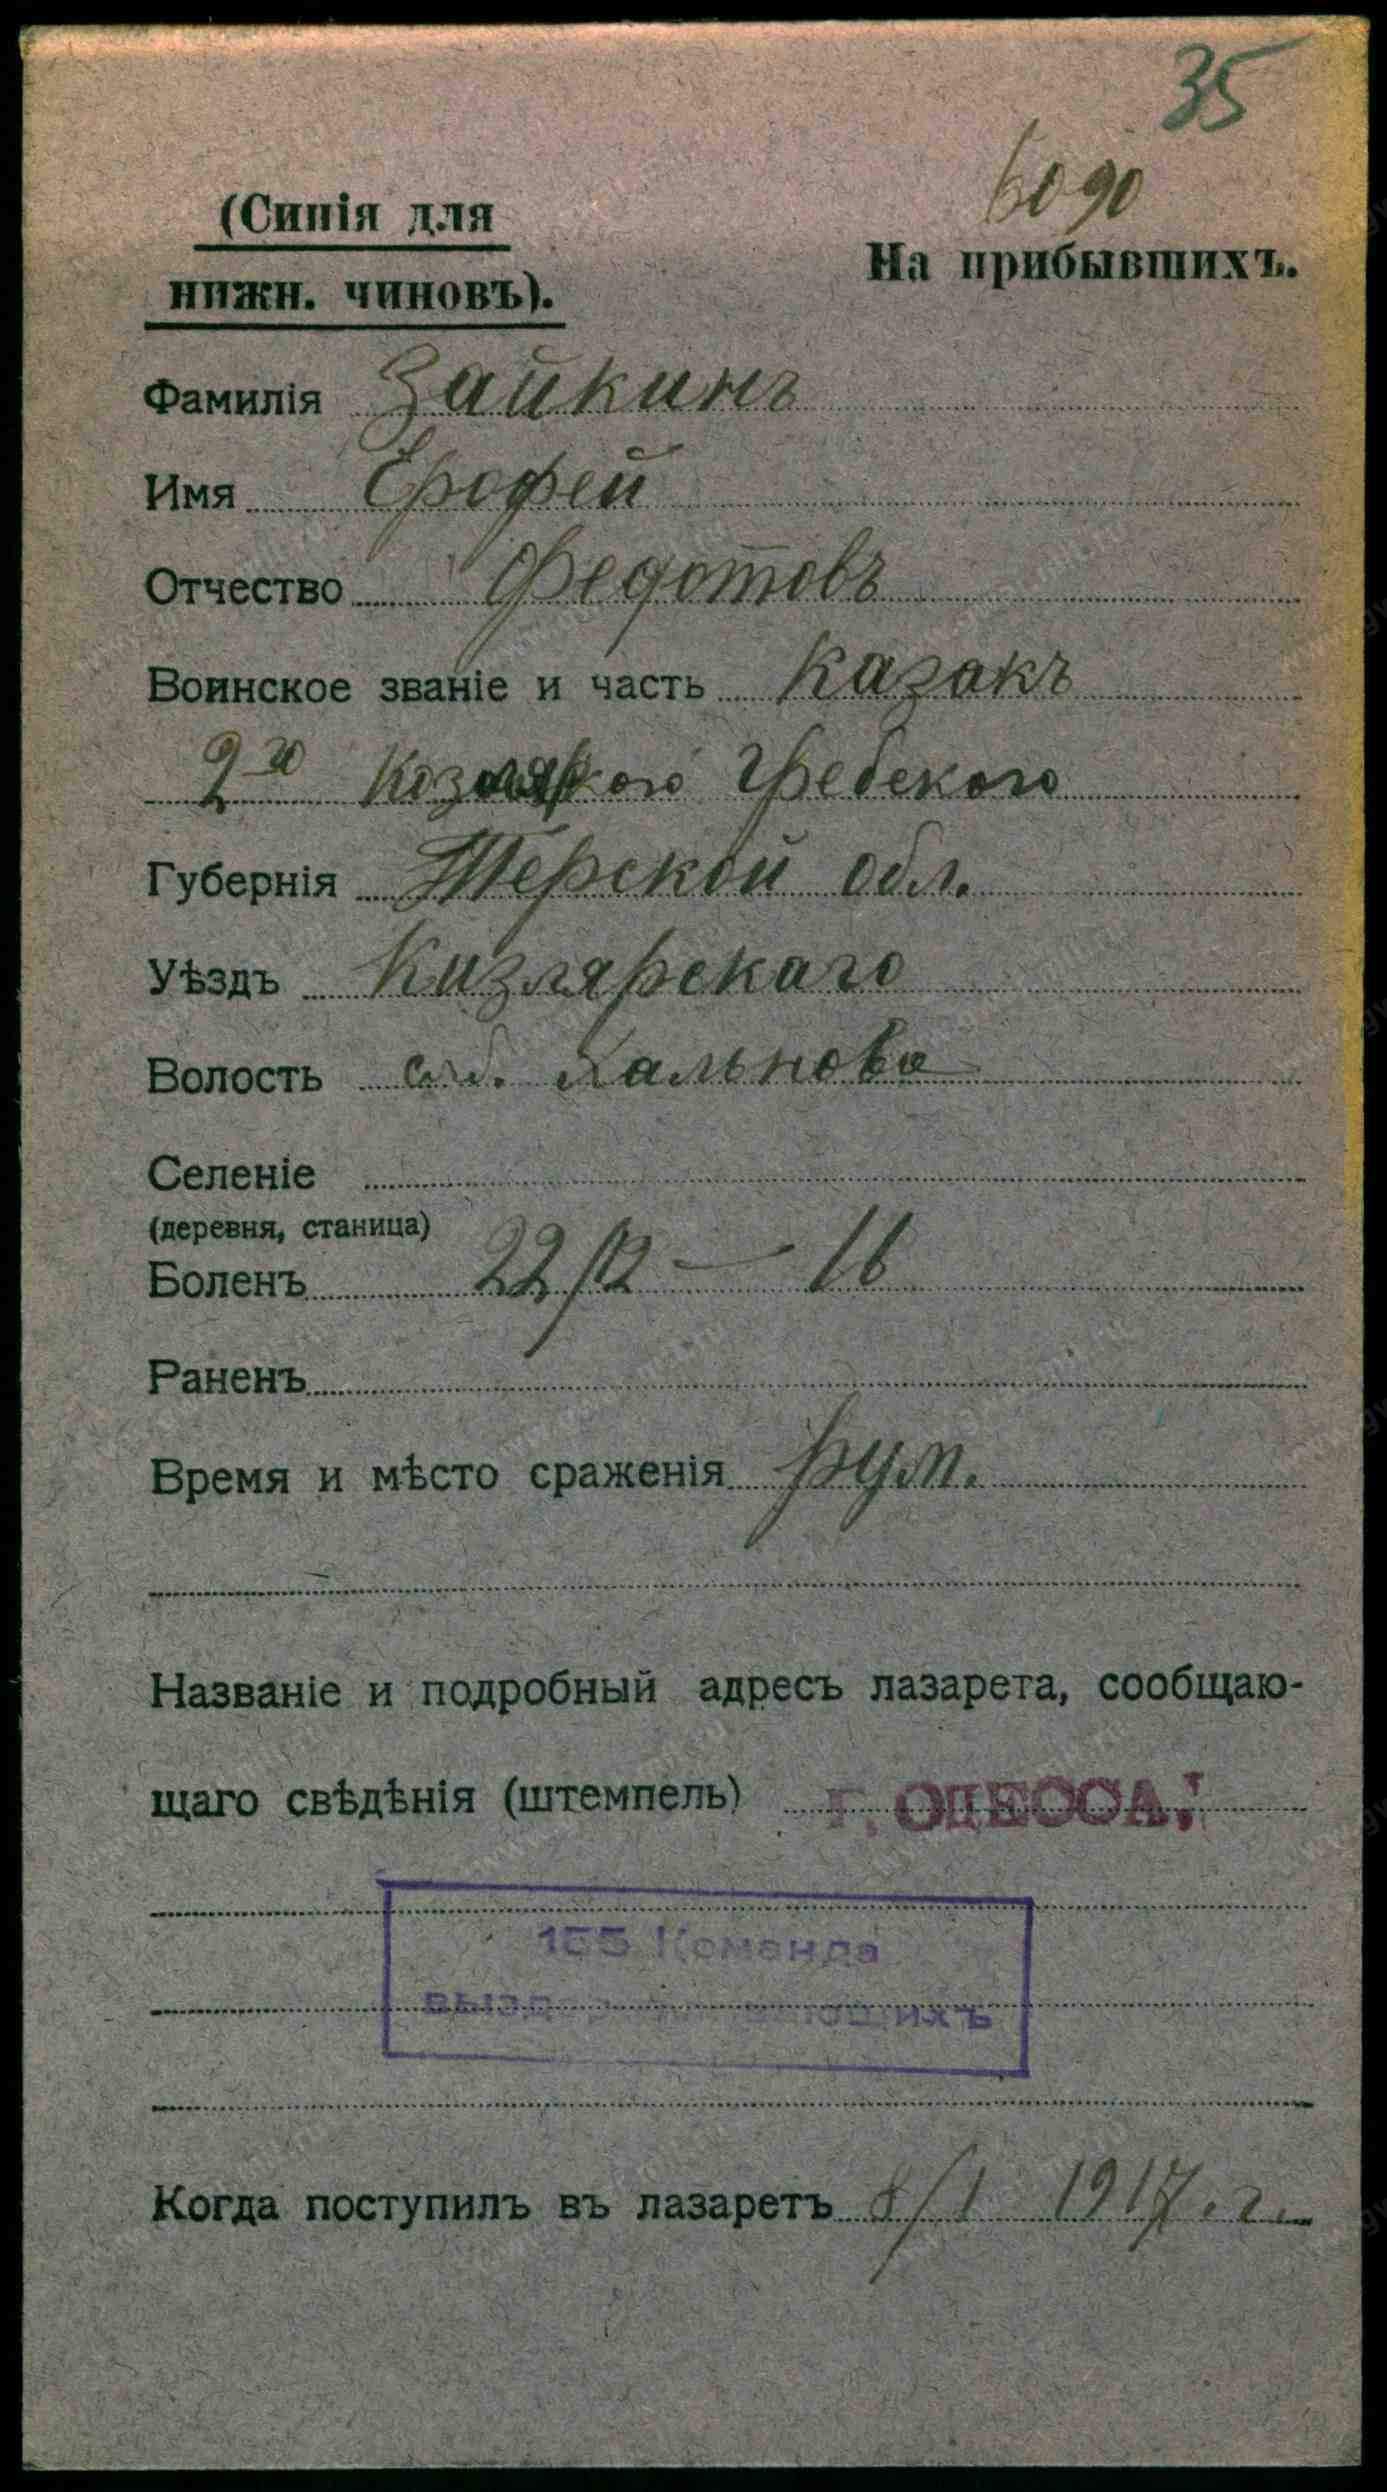 35
6090
(Синія для
нижн. чиновъ).
На прибывшихъ.
Фамилія Зайкинъ
Имя Ерофей
Отчество Федотовъ
Воинское званіе и часть Казакъ
2го Гребского
Губернія Терской обл.
Уѣздъ Кизлярскаго
Волость Кальнова
Селеніе
(деревня, станица)
Боленъ 22/12 — 16
Раненъ
Время и мѣсто сраженія Рум.
Названіе и подробный адресъ лазарета, сообщаю-
щаго свѣдѣнія (штемпель) г. ОДЕССА.
155 Команда
выздоравливающихъ
Когда поступилъ въ лазаретъ 8/1 1917.г.